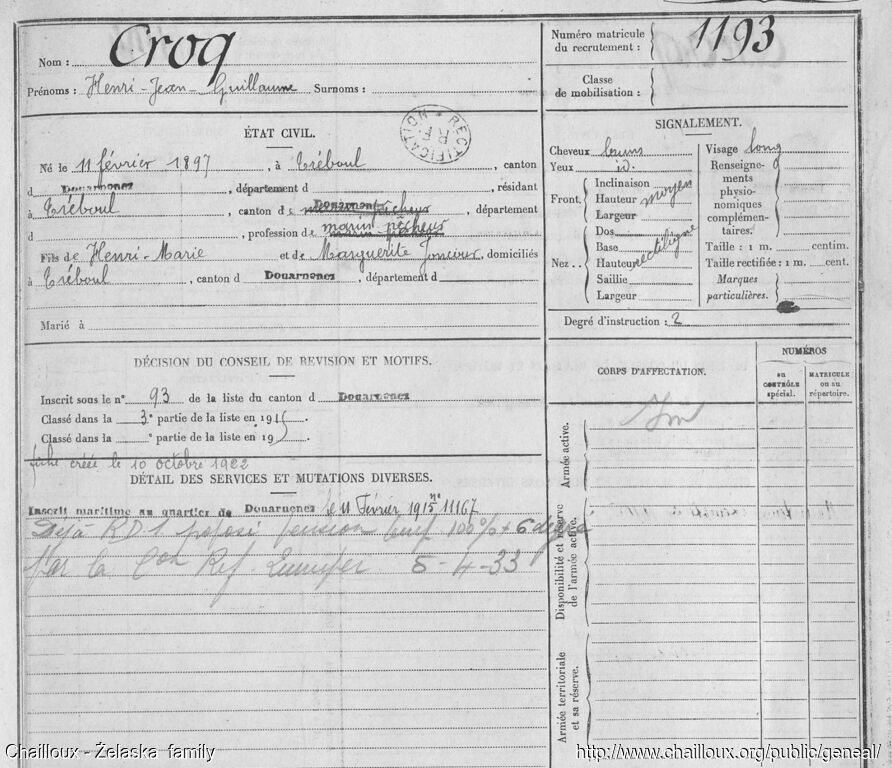 Nom : Croq
Prénoms : Henri-Jean-Guillaume Surnoms :
Numéro matricule du recrutement : 1193
Classe de mobilisation :
RECTIFICATION
ÉTAT CIVIL.
Né le 11 février 1897, à Tréboul, canton
d Douarnenez, département d , résidant
à Tréboul, canton d Douarnenez, département
d , profession de marin pêcheur
Fils de Henri-Marie et de Marguerite Joncour, domiciliés
à Tréboul, canton d Douarnenez, département d
Marié à
SIGNALEMENT.
Cheveux bruns
Yeux id.
Front. Inclinaison
Hauteur moyen
Largeur
Nez.. Dos
Base
Hauteur rectiligne
Saillie
Largeur
Visage long
Renseigne-
ments
physio-
nomiques
complémen-
taires.
Taille : 1 m. centim.
Taille rectifiée : 1 m. cent.
Marques
particulières.
Degré d'instruction : 2
DÉCISION DU CONSEIL DE REVISION ET MOTIFS.
Inscrit sous le n° 93 de la liste du canton d Douarnenez
Classé dans la 3e partie de la liste en 1915.
Classé dans la e partie de la liste en 19 .
fiche créée le 10 octobre 1922
DÉTAIL DES SERVICES ET MUTATIONS DIVERSES.
Inscrit maritime au quartier de Douarnenez le 11 Février 1915 n° 11167
Déjà RD1 proposé pension 100% + 6 degré
Par la Con Ref. Quimper 5-4-33
CORPS D'AFFECTATION.
NUMÉROS
au CONTRÔLE spécial.
MATRICULE ou au répertoire.
Im
Armée active.
Disponibilité et réserve de l'armée active.
Armée territoriale et sa réserve.
Chailloux - Żelaska family
http://www.chailloux.org/public/geneal/